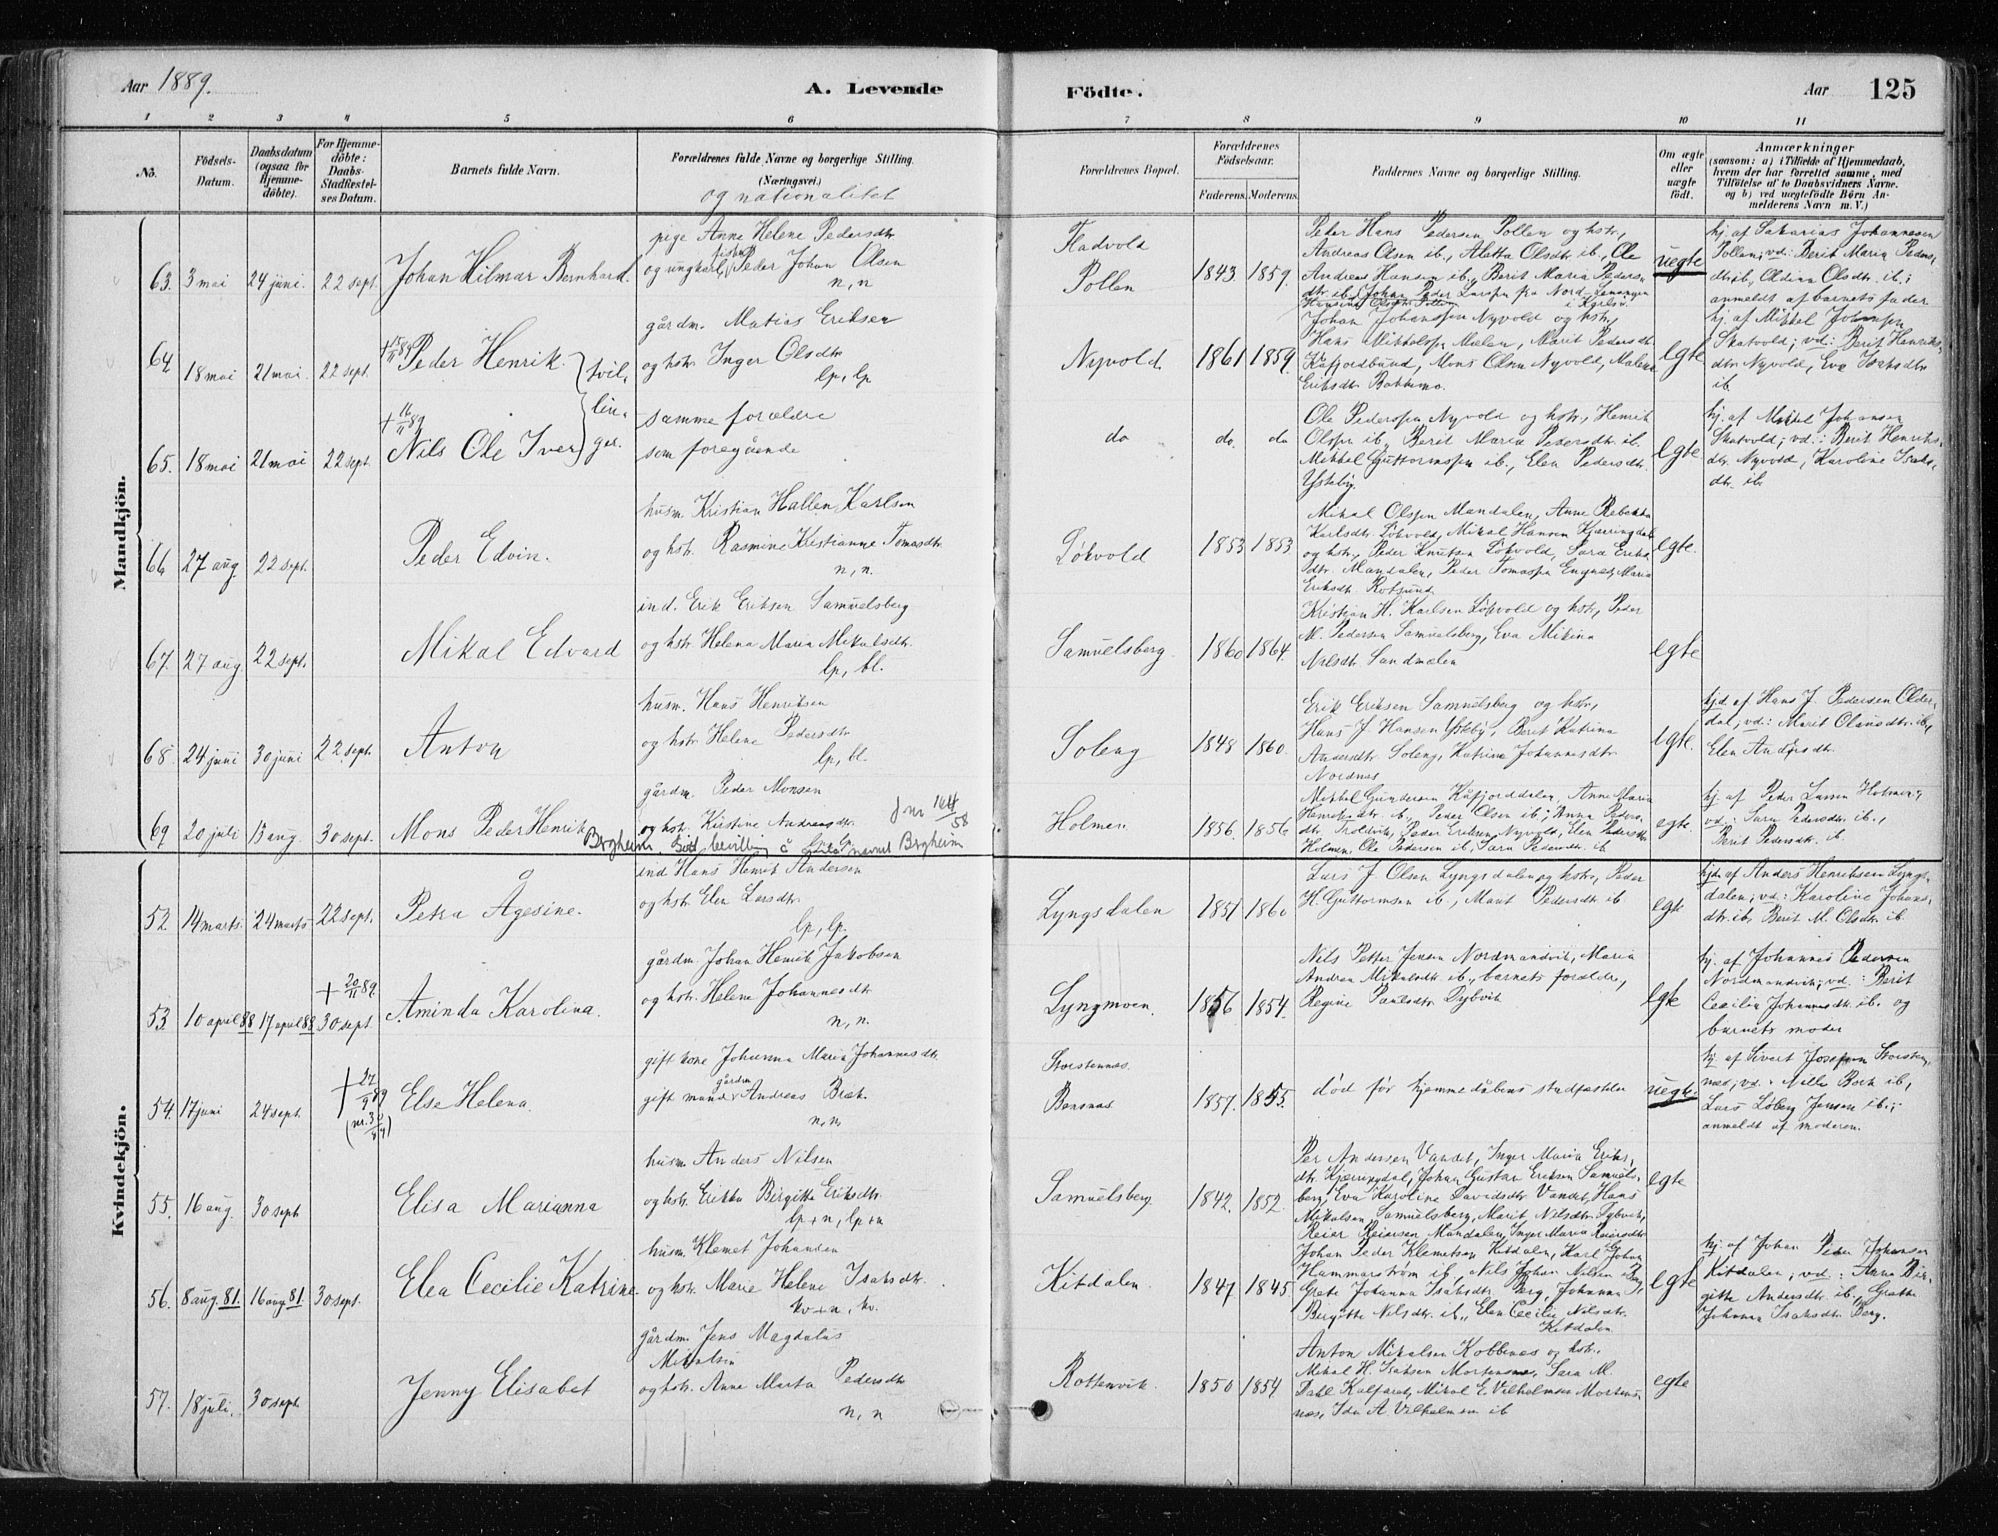 Aar 1889.
A. Levende Födte.
Aar 125
1 2 3 4 5 6 7 8 9 10 11
No.
Födsels-Datum.
Daabsdatum (ogsaa for Hjemme-döbte).
For Hjemme-döbte: Daabs-Stadfæstel-ses Datum.
Barnets fulde Navn.
Forældrenes fulde Navne og borgerlige Stilling.
(Næringsvei.)
og nationalitet
Forældrenes Bopæl.
Forældrenes Födselsaar.
Faderens. Moderens.
Faddernes Navne og borgerlige Stilling.
Om ægte eller uægte födt.
Anmærkninger
(saasom: a) i Tilfælde af Hjemmedaab,
hvem der har forrettet samme, med
Tilföielse af to Daabsvidners Navne.
og b) ved uægtefödte Börn An-
melderens Navn m. V.)
Mandkjön.
63. 3 mai 24 juni. 22 sept. Johan Hilmar Bernhard.
pige Anne Helene Pedersdtr.
og ungkarl, Peder Johan Olsen
n, n
Fladvold
Pollen
1843 1859.
Peder Hans Pedersen Pollen og hstr,
Andreas Olsen ib., Aletta Olsdtr ib., Ole
Andreas Hansen ib., Berit Maria Peders
dtr ib., Johan Peder Larsen fra Nord-Lenangen
i Karlsö.
uegte
hj. af Sakarias Johannesen
Pollen; vd: Berit Maria Peders
dtr ib, Oldina Olsdtr. ib.;
anmeldt af barnets fader
64. 18 mai 21 mai. 22 sept. Peder Henrik. tvil,
gårdm. Matias Eriksen
og hstr. Inger Olsdtr
lp, lp
Nyvold 1861 1859.
Johan Johanssen Nyvold og hstr,
Hans Mikkelsen Mælen, Marit Pedersdtr
Kåfjordbund, Mons Olsen Nyvold, Malena
Eriksdtr
egte
hj. af Mikkel Johansen
Skatvold; vd: Berit Henriks
dtr Nyvold, Eva Isaksdtr
ib.
65. 18 mai 21 mai 22 sept. + 16/11 89 Nils Ole Iver lin, ger.
samme forældre
som foregående
do do. do
Ole Pedersen Nyvold og hstr, Henrik
Olsen ib., Berit Maria Pedersdtr ib.
Mikkel Guttormsen ib., Elen Pedersdtr.
Ysteby.
egte
hj. af Mikkel Johansen
Skatvold; vd: Berit Henriks,
dtr. Nyvold, Karoline Isaks,
dtr. ib.
66 27 aug. 22 sept. Peder Edvin.
husm. Kristian Hallen Karlsen
og hstr. Rasmine Kristianne Tomasdtr.
n, n.
Løkvold 1853 1853
Mikal Olsen Mandalen, Anne Rebekka
Karlsdtr. Løkvold, Mikal Hansen Kjærringdal
og hstr, Peder Knutsen Løkvold, Sara Eriks
dtr. Mandalen, Peder Tomassen Engnes, Maria
Eriksdtr. Rotsund
egte.
67. 27 aug. 22 sept. Mikal Edvard
ind. Erik Eriksen Samuelsberg
og hstr Helena Maria Mikalsdtr.
lp, bl.
Samuelsberg. 1860 1864.
Kristian H. Karlsen Løkvold og hstr, Peder
M. Pedersen Samuelsberg, Eva Mikina
Nilsdtr. Sandmælen
egte
68. 24 juni 30 juni 22 sept. Anton
husm. Hans Henriksen
og hstr Helene Pedersdtr
lp, bl.
Soleng 1848 1860.
Erik Eriksen Samuelsberg og hstr,
Hans J. Hansen Ysteby, Berit Katrina
Andersdtr. Soleng, Katrine Johannesdtr
Nordnes
egte.
hjd af Hans J. Pedersen Older
dal; vd: Marit Olausdtr. ib,
Elen Andersdtr.
69 20 juli 13 aug. 30 sept. Mons Peder Henrik
gårdm. Peder Monsen
og hstr. Kirstine Andreasdtr.
Bergheim Gitt bevilling å navnet Bergheim
J nr 144/58
Holmen 1856. 1856
Mikkel Gundersen Kåfjorddalen, Anne Maria
Henriksdtr ib., Peder Olsen ib; Anna Peders
dtr Troldvik, Peder Eriksen Nyvold, Elen Pedersdtr
Holmen, Ole Pedersen ib, Sara Pedersdtr. ib
egte.
hj. af Peder Larsen Holmen;
vd: Sara Pedersdtr. ib.,
Berit Pedersdtr. ib
Kvindekjön.
52 14 marts. 24 marts 22 sept. Petra Ågesine.
ind Hans Henrik Andersen
og hstr. Elen Larsdtr.
lp, lp.
Lyngsdalen 1851 1860
Lars J. Olsen Lyngsdalen og hstr, Peder
H. Guttormsen ib., Marit Pedersdtr ib.
egte
hjdn. af Anders Henriksen Lyngs-
dalen; vd: Karoline Johans
dtr. ib, Berit M. Olsdtr ib.
53. 10 april 88 17 april 88 30 sept. + 20/11 89. Aminda Karolina.
gårdm. Johan Henrik Jakobsen
og hstr. Helene Johannesdtr
n, n.
Lyngmoen. 1856 1854.
Nils Petter Jensen Nordmandvik, Maria
Andrea Mikalsdtr ib., barnets forældre,
Regine Paulsdtr. Dybvik
egte
hj. af Johannes Pedersen
Nordmandvik; vd: Berit
Cecilia Johannesdtr. ib. og
barnets moder
54. 17 juni 24 sept. + 27/9 89 Else Helena.
gift kone Johanna Maria Johannesdtr
gift mand gårdm Andreas Bræk.
n, n
Storstennæs.
Bensnæs. 1857. 1855.
død før hjemmedåbens stadfæstelse
uegte.
hj. af Sivert Josefsen Storsten,
næs; vd: Nille Bork ib,
Lars Løberg Jensen ib.;
anmeldt af moderen.
55. 16 aug. 30 sept Elisa Marianna
husm. Anders Nilsen
og hstr. Erikka Birgitte Eriksdtr.
lp+n, lp+n
Samuelsberg. 1842. 1852.
Per Andersen Vandet, Inger Maria Eriks,
dtr. Kjerringdal, Johan Gustav Eriksen Samuels-
berg, Eva Karoline Davidsdtr Vandet, Hans
Mikalsen Samuelsberg, Marit Nilsdtr. Dybvik,
Reier Reiersen Mandalen, Inger Maria Reiersdtr
egte
56. 8 aug. 81. 16 aug 81. 30 sept. Elea Cecilie Katrine
husm. Klemet Johansen
og hstr. Marie Helene Isaksdtr.
kv+n, kv.
Kitdalen. 1847 1845.
Johan Peder Klemetsen Kitdalen, Karl Johan
Hammarstrøm ib, Nils Johan Nilsen Berg
Grete Johanna Isaksdtr. Berg, Johanna
Bergitte Nilsdtr. ib., Elen Cecilie Nilsdtr.
Kitdalen
egte
hj. af Johan Peder Johansen
Kitdalen; vd: Anna Bir,
gitte Andersdtr. ib., Grethe
Johanna Isaksdtr. Berg.
57. 18 juli. 30 sept Jenny Elisabet
gårdm. Jens Magdalus
Mikalsen
og hstr. Anne Marta Pedersdtr
n, n
Rottenvik. 1850 1854
Anton Mikalsen Kobbenes og hstr.
Mikal H. Isaksen Mortensnæs, Sara M.
Dahl Kalfaret, Mikal E. Vilhelmsen Mortens,
næs, Ida A. Vilhelmsen ib
egte